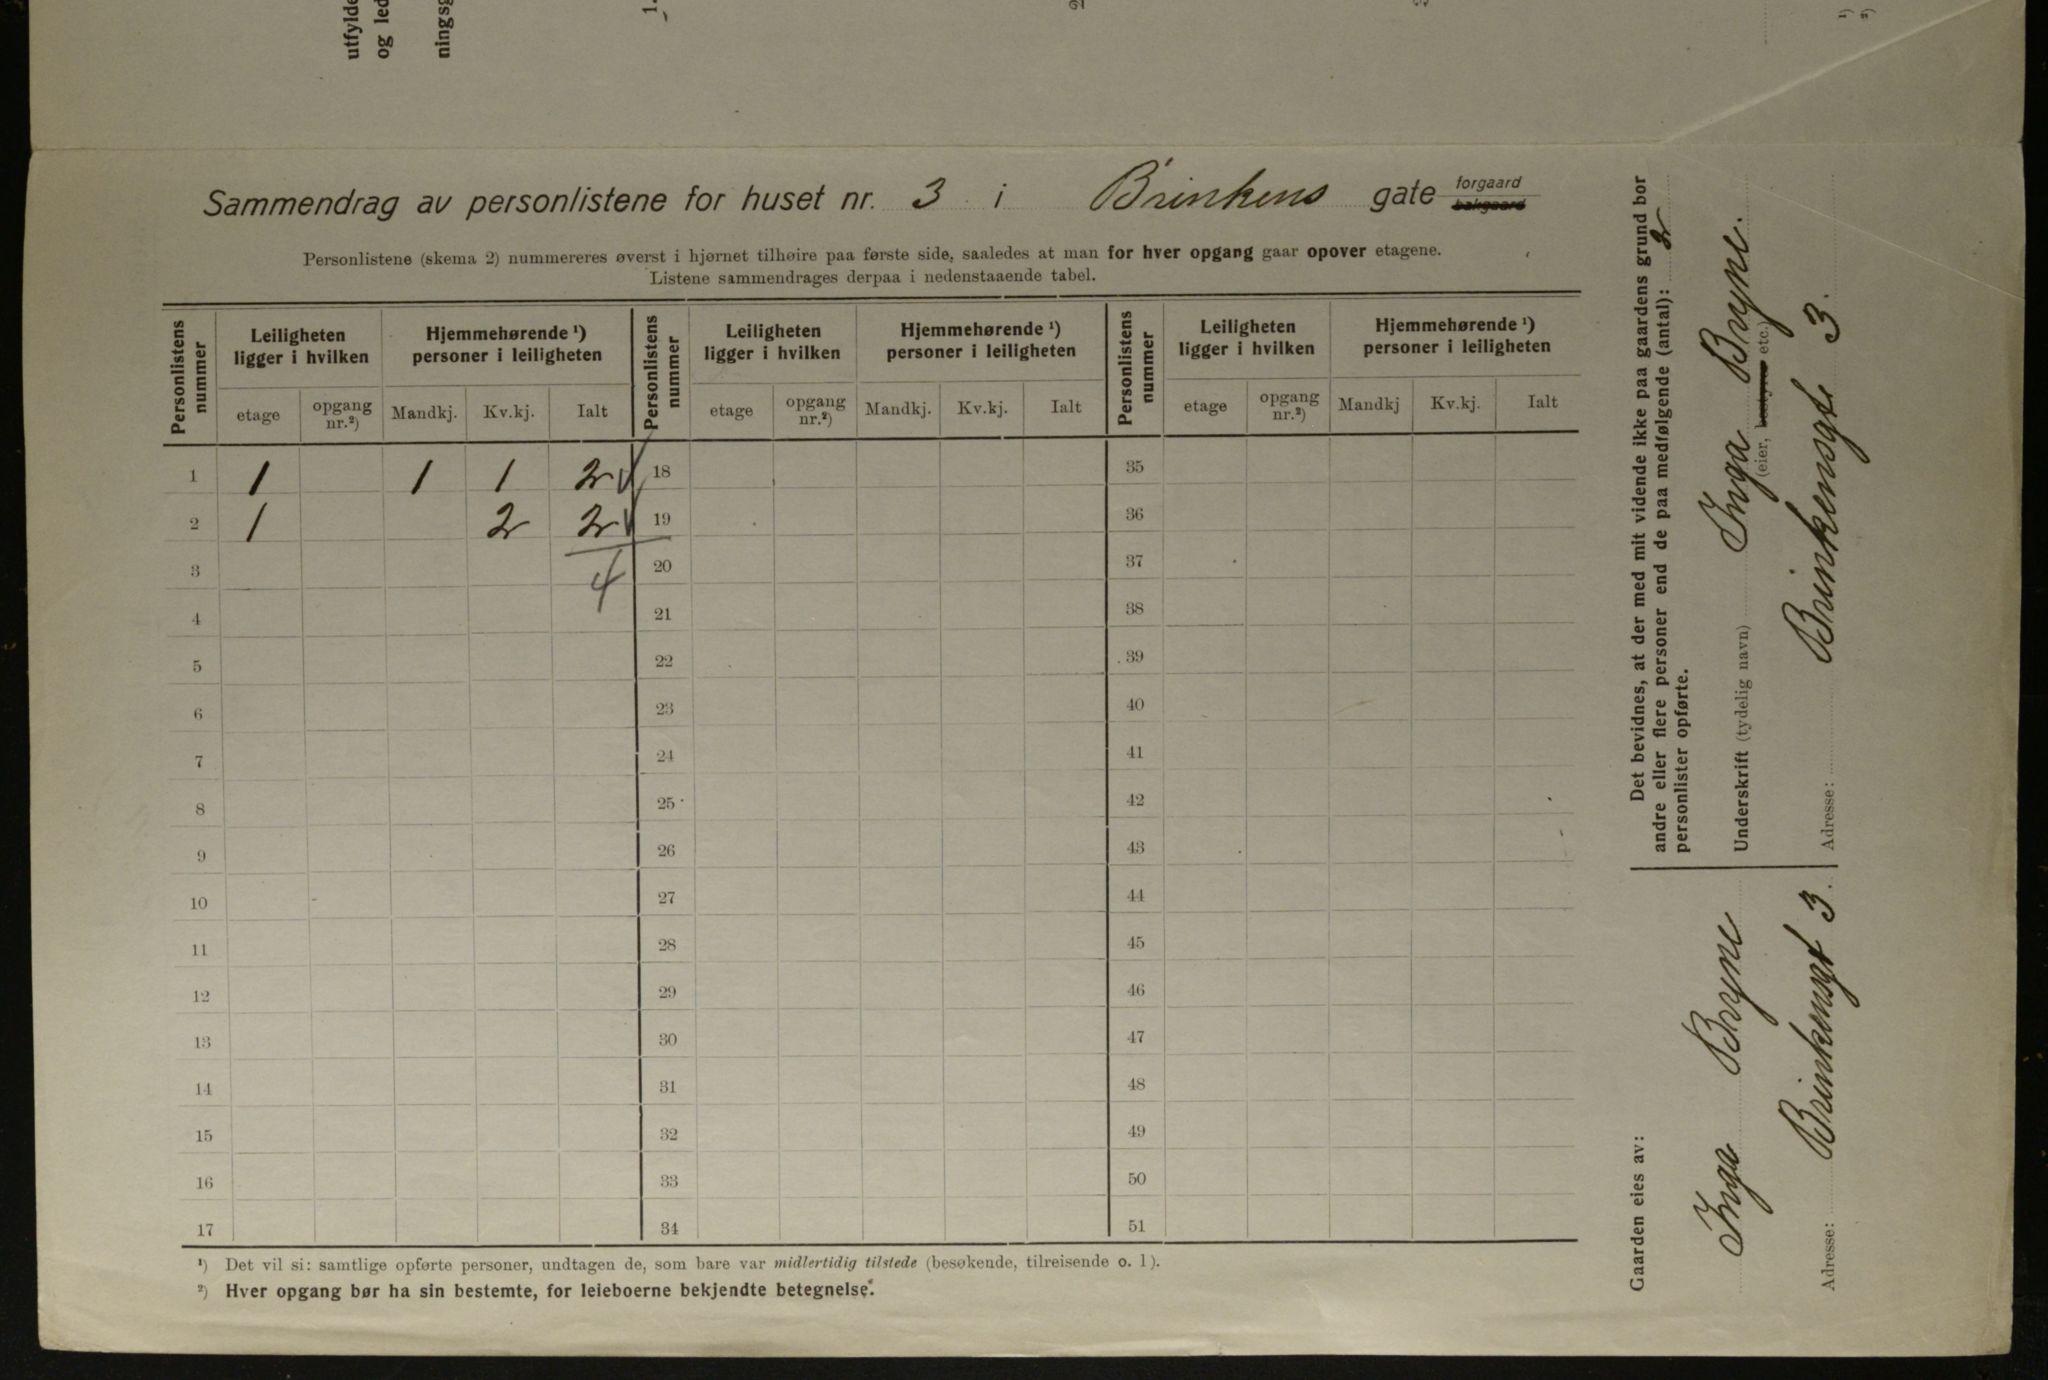 utfylde
og led
ningsg
1.
2
3
¹)
²)
Sammendrag av personlistene for huset nr. 3 i Brinkens gate forgaard
bakgaard
Personlistene (skema 2) nummereres øverst i hjørnet tilhøire paa første side, saaledes at man for hver opgang gaar opover etagene.
Listene sammendrages derpaa i nedenstaaende tabel.
Personlistens nummer | Leiligheten ligger i hvilken | Hjemmehørende ¹) personer i leiligheten | Personlistens nummer | Leiligheten ligger i hvilken | Hjemmehørende ¹) personer i leiligheten | Personlistens nummer | Leiligheten ligger i hvilken | Hjemmehørende ¹) personer i leiligheten
etage | opgang nr.²) | Mandkj. | Kv.kj. | Ialt | etage | opgang nr.²) | Mandkj. | Kv.kj. | Ialt | etage | opgang nr.²) | Mandkj | Kv.kj. | Ialt
1 1 1 1 2 18 35
2 1 2 2 19 36
3 4 20 37
4 21 38
5 22 39
6 23 40
7 24 41
8 25 42
9 26 43
10 27 44
11 28 45
12 29 46
13 30 47
14 31 48
15 32 49
16 33 50
17 34 51
¹) Det vil si: samtlige opførte personer, undtagen de, som bare var midlertidig tilstede (besøkende, tilreisende o. l).
²) Hver opgang bør ha sin bestemte, for leieboerne bekjendte betegnelse.
Det bevidnes, at der med mit vidende ikke paa gaardens grund bor
andre eller flere personer end de paa medfølgende (antal): 2
personlister opførte.
Underskrift (tydelig navn) Inga Bryne.
(eier, bestyrer etc.)
Adresse: Brinkensgt 3.
Gaarden eies av:
Inga Bryne
Adresse: Brinkensgt 3.